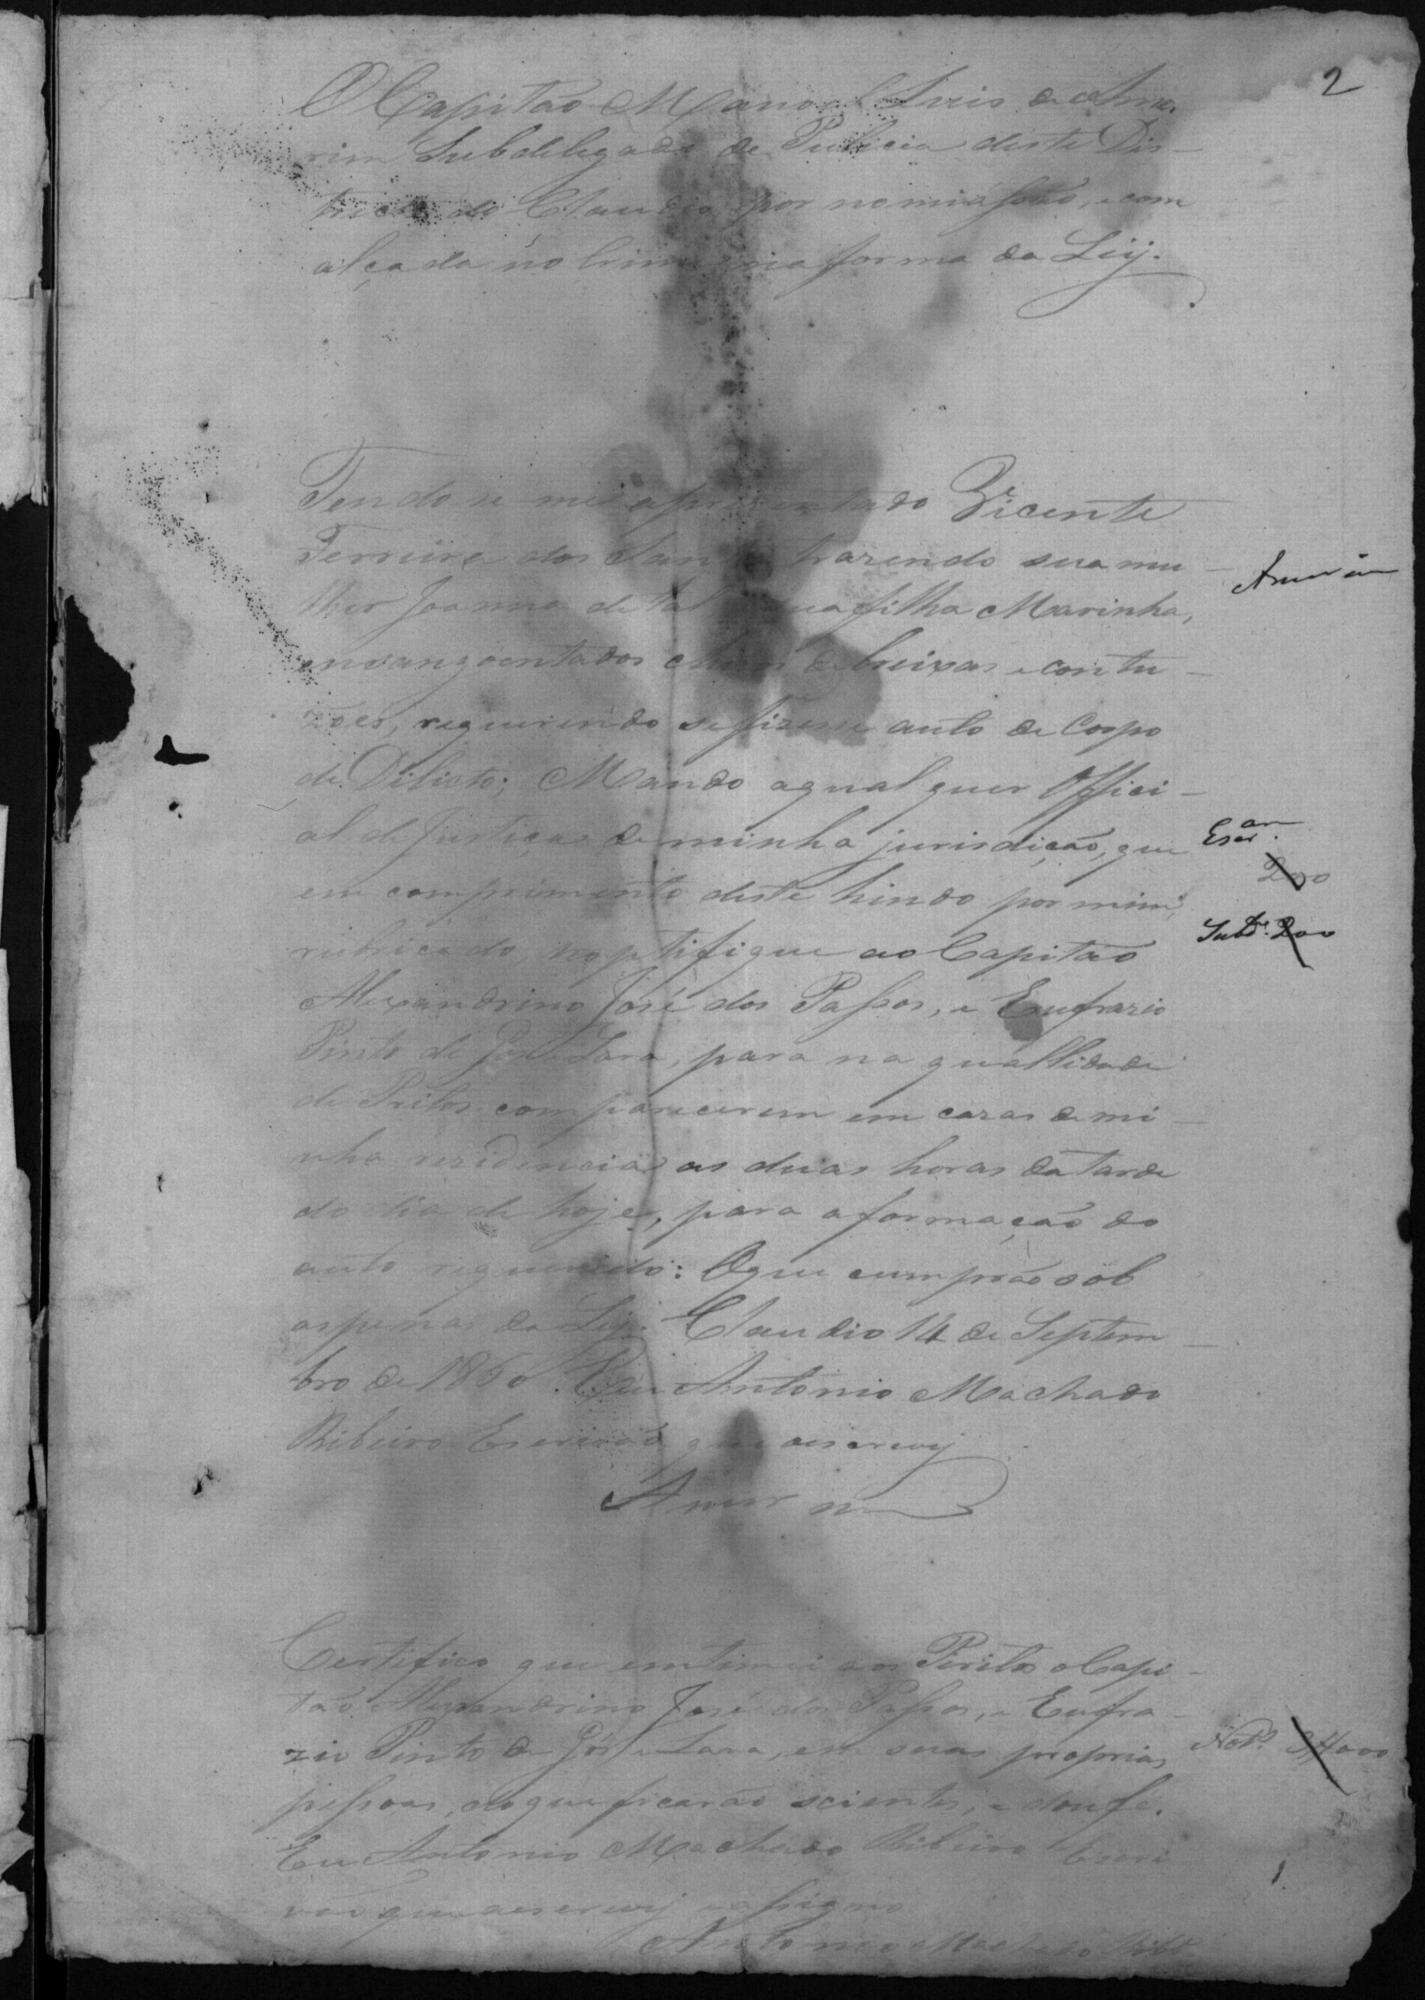 2
O Capitão Manoel Luis de Amo
rim Subdelegado de Pulicia deste Dis
tricto do Claudio por nomiassão, e com
alçada no Crime na forma da Leij.
Tendo se me apresentado Vicente
Ferreira dos San trazendo sua mu
lher Joanna de tal sua filha Marinha,
Amorim
ensangoentados de breixas e contu
zoes, requerendo se fizesse auto de Corpo
de Dilicto; Mando aqual quer Offici
al d Justiça de minha jurisdição, que
Escr.am
200
em comprimento deste hindo por mim
Subd.º 200
rubricado noptifique ao Capitão
Alexandrino José dos Passos, e Eufrazio
Pinto de Lara, para na quallidade
de Pritos comparecerem em cazas de mi
nha rezidencia as duas horas da tarde
do dia de hoje, para aformação do
auto requerido: Oque cumprão sob
aspenas da Leij. Claudio 14 de Septem
bro de 1860. Eu Antonio Machado
Ribeiro Escrivão que aescrevij
Amorim
Certifico que emtimei aos Peritos o Capi
tão Alexandrino José dos Passos, e Eufra
zio Pinto de Lara, em suas proprias
Not.
pessoas, doque ficarão scientes, e doufe.
Eu Antonio Machado Ribeiro Escri
vão que aescrevij e assigno
Antonio Machado Ribº